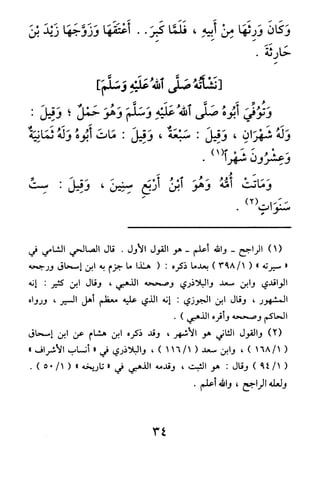 وَكَانَ وَرِثَهَا مِنْ أَبِيهِ ، فَلَمَّا كَبِرَ.. أَعْتَقَهَا وَزَوَّجَهَا زَيْدَ بْنَ
حَارِثَةَ .
[نَشْأَتُهُ صَلَّى ٱللهُ عَلَيْهِ وَسَلَّمَ]
وَتُوُفِّيَ أَبُوهُ صَلَّى ٱللهُ عَلَيْهِ وَسَلَّمَ وَهُوَ حَمْلٌ ؛ وَقِيلَ :
وَلَهُ شَهْرَانِ ، وَقِيلَ : سَبْعَةٌ ، وَقِيلَ : مَاتَ أَبُوهُ وَلَهُ ثَمَانِيَةٌ
وَعِشْرُونَ شَهْراً(١) .
وَمَاتَتْ أُمُّهُ وَهُوَ ٱبْنُ أَرْبَعِ سِنِينَ ، وَقِيلَ : سِتِّ
سَنَوَاتٍ(٢) .
(١) الراجح ـ والله أعلم ـ هو القول الأول . قال الصالحي الشامي في
« سيرته » ( ٣٩٨/١ ) بعدما ذكره : ( هـٰذا ما جزم به ابن إسحاق ورجحه
الواقدي وابن سعد والبلاذري وصححه الذهبي ، وقال ابن كثير : إنه
المشهور ، وقال ابن الجوزي : إنه الذي عليه معظم أهل السير ، ورواه
الحاكم وصححه وأقره الذهبي ) .
(٢) والقول الثاني هو الأشهر ، وقد ذكره ابن هشام عن ابن إسحاق
( ١٦٨/١ ) ، وابن سعد ( ١١٦/١ ) ، والبلاذري في « أنساب الأشراف »
( ٩٤/١ ) وقال : هو الثبت ، وقدمه الذهبي في « تاريخه » ( ٥٠/١ ) .
ولعله الراجح ، والله أعلم .
٣٤